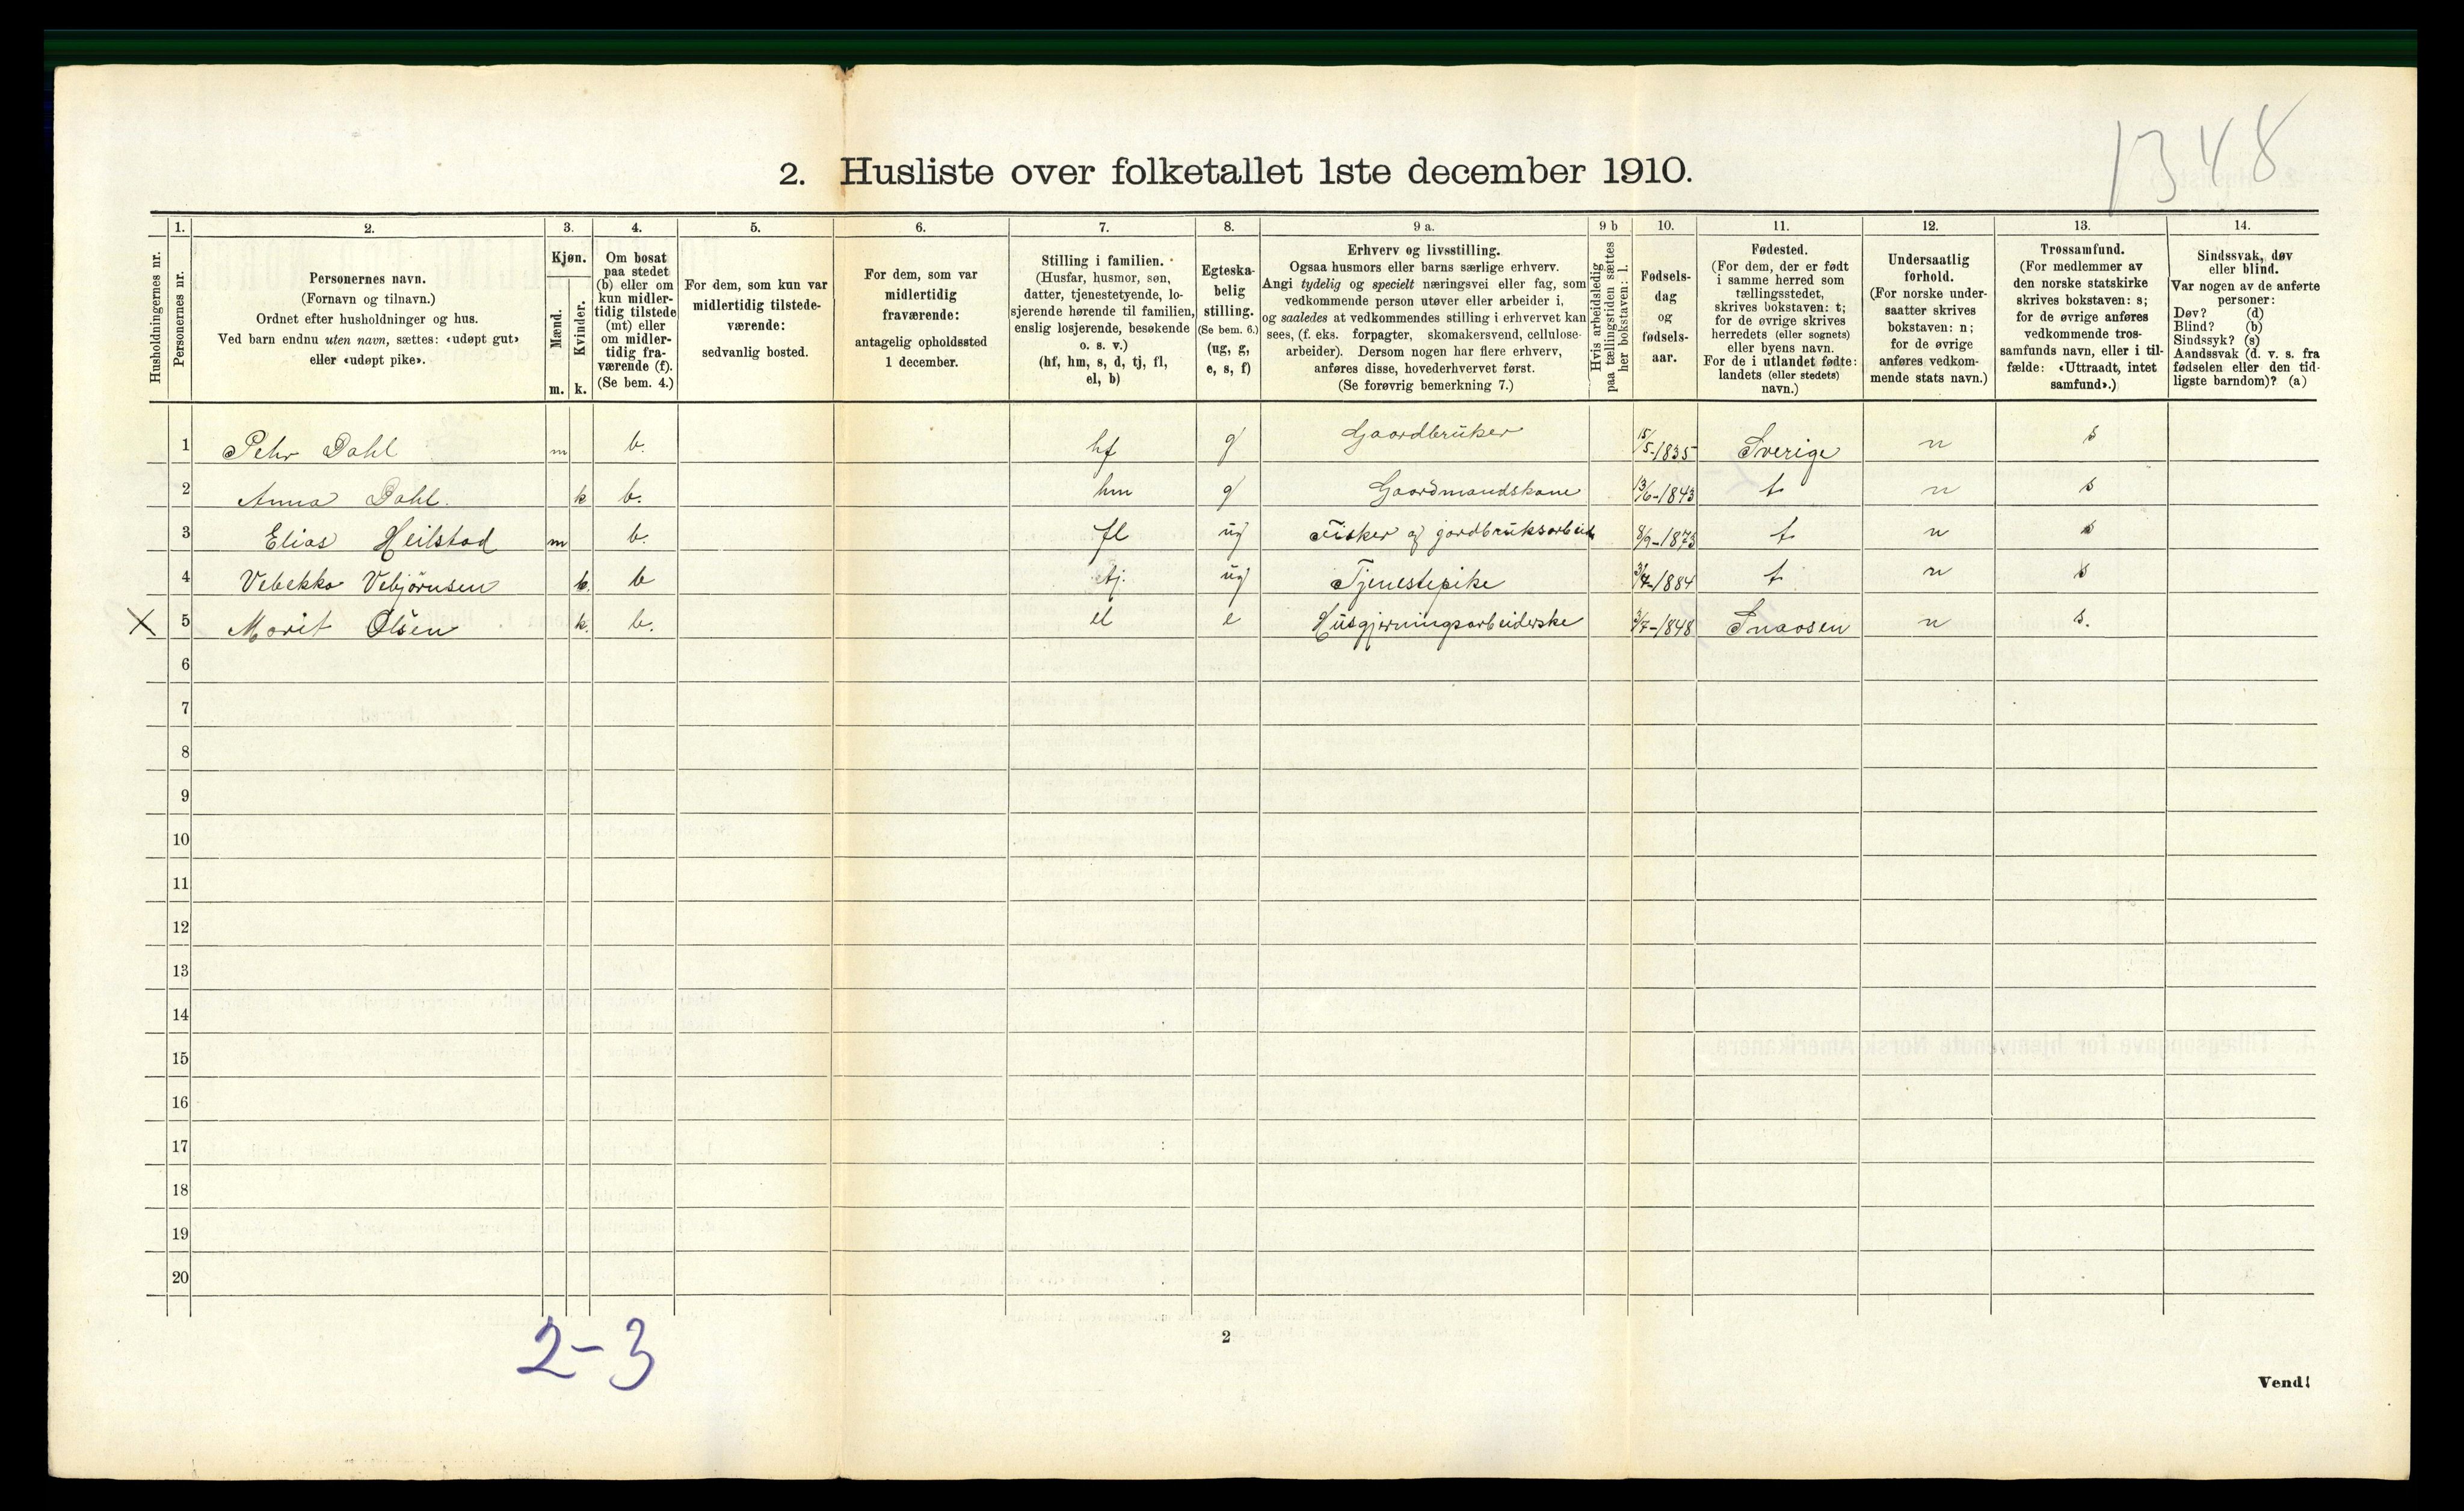 1348
2. Husliste over folketallet 1ste december 1910.
Husholdningernes nr.
1. Personernes nr.
2. Personernes navn. (Fornavn og tilnavn.) Ordnet efter husholdninger og hus. Ved barn endnu uten navn, sættes: «udøpt gut» eller «udøpt pike».
3. Kjøn. Mænd. m. Kvinder. k.
4. Om bosat paa stedet (b) eller om kun midlertidig tilstede (mt) eller om midlertidig fraværende (f). (Se bem. 4.)
5. For dem, som kun var midlertidig tilstedeværende: sedvanlig bosted.
6. For dem, som var midlertidig fraværende: antagelig opholdssted 1 december.
7. Stilling i familien. (Husfar, husmor, søn, datter, tjenestetyende, losjerende hørende til familien, enslig losjerende, besøkende o. s. v.) (hf, hm, s, d, tj, fl, el, b)
8. Egteskabelig stilling. (Se bem. 6.) (ug, g, e, s, f)
9 a. Erhverv og livsstilling. Ogsaa husmors eller barns særlige erhverv. Angi tydelig og specielt næringsvei eller fag, som vedkommende person utøver eller arbeider i, og saaledes at vedkommendes stilling i erhvervet kan sees, (f. eks. forpagter, skomakersvend, cellulosearbeider). Dersom nogen har flere erhverv, anføres disse, hovederhvervet først. (Se forøvrig bemerkning 7.)
9 b Hvis arbeidsledig paa tællingstiden sættes her bokstaven: l.
10. Fødselsdag og fødselsaar.
11. Fødested. (For dem, der er født i samme herred som tællingsstedet, skrives bokstaven: t; for de øvrige skrives herredets (eller sognets) eller byens navn. For de i utlandet fødte: landets (eller stedets) navn.)
12. Undersaatlig forhold. (For norske undersaatter skrives bokstaven: n; for de øvrige anføres vedkommende stats navn.)
13. Trossamfund. (For medlemmer av den norske statskirke skrives bokstaven: s; for de øvrige anføres vedkommende trossamfunds navn, eller i tilfælde: «Uttraadt, intet samfund».)
14. Sindssvak, døv eller blind. Var nogen av de anførte personer: Døv? (d) Blind? (b) Sindssyk? (s) Aandssvak (d. v. s. fra fødselen eller den tidligste barndom)? (a)
1 Pehr Dahl m b. hf g Gaardbruker 15/5-1835 Sverige n s
2 Anna Dahl. k b. hm g Gaardmandskone 13/6-1843 t n s
3 Elias Heilstad m b. fl ug Fisker og gardbruksarbeid 8/9-1873 t n s
4 Vebekka Vebjørnsen k. b tj. ug Tjenestepike 3/7-1884 t n s
X 5 Marit Olsen k. b. el e Husgjerningsarbeiderske 3/7-1848 Snaasen n s.
6
7
8
9
10
11
12
13
14
15
16
17
18
19
20
2-3
2
Vend!